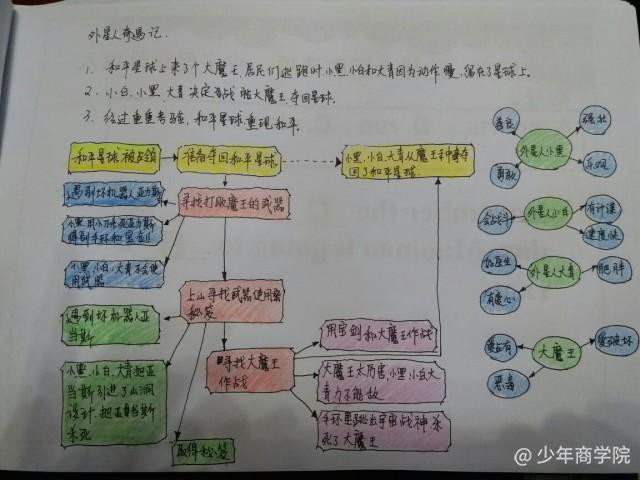 外星人奇遇记.
1. 和平星球上来了个大魔王,居民们逃跑时,小黑、小白和大青因为动作慢,留在了星球上。
2. 小白、小黑、大青决定要战胜大魔王夺回星球.
3. 经过重重考验,和平星球重现和平.
和平星球被占领
准备夺回和平星球
小黑,小白,大青从魔王手中夺
回了和平星球
善良
强壮
外星人小黑
勇敢
乐观
遇到坏机器人亚力斯
寻找打败魔王的武器
得到手环和宝剑
小黑,小白,大青不会使
用武器
会战斗
有计谋
外星人小白
速度快
外星人大青
肥胖
有爱心
上山寻找武器使用密
秘笈
遇到坏机器人亚
当斯
用宝剑和大魔王作战
寻找大魔王
作战
大魔王太厉害,小黑,小白,大
青力不能敌
手环里跳出宇宙战神杀
死了大魔王
小黑,小白,大青把亚
当斯引进了山洞
设计,把亚当斯
杀死
取得秘笈
爱占有
爱破坏
大魔王
恶毒
@少年商学院